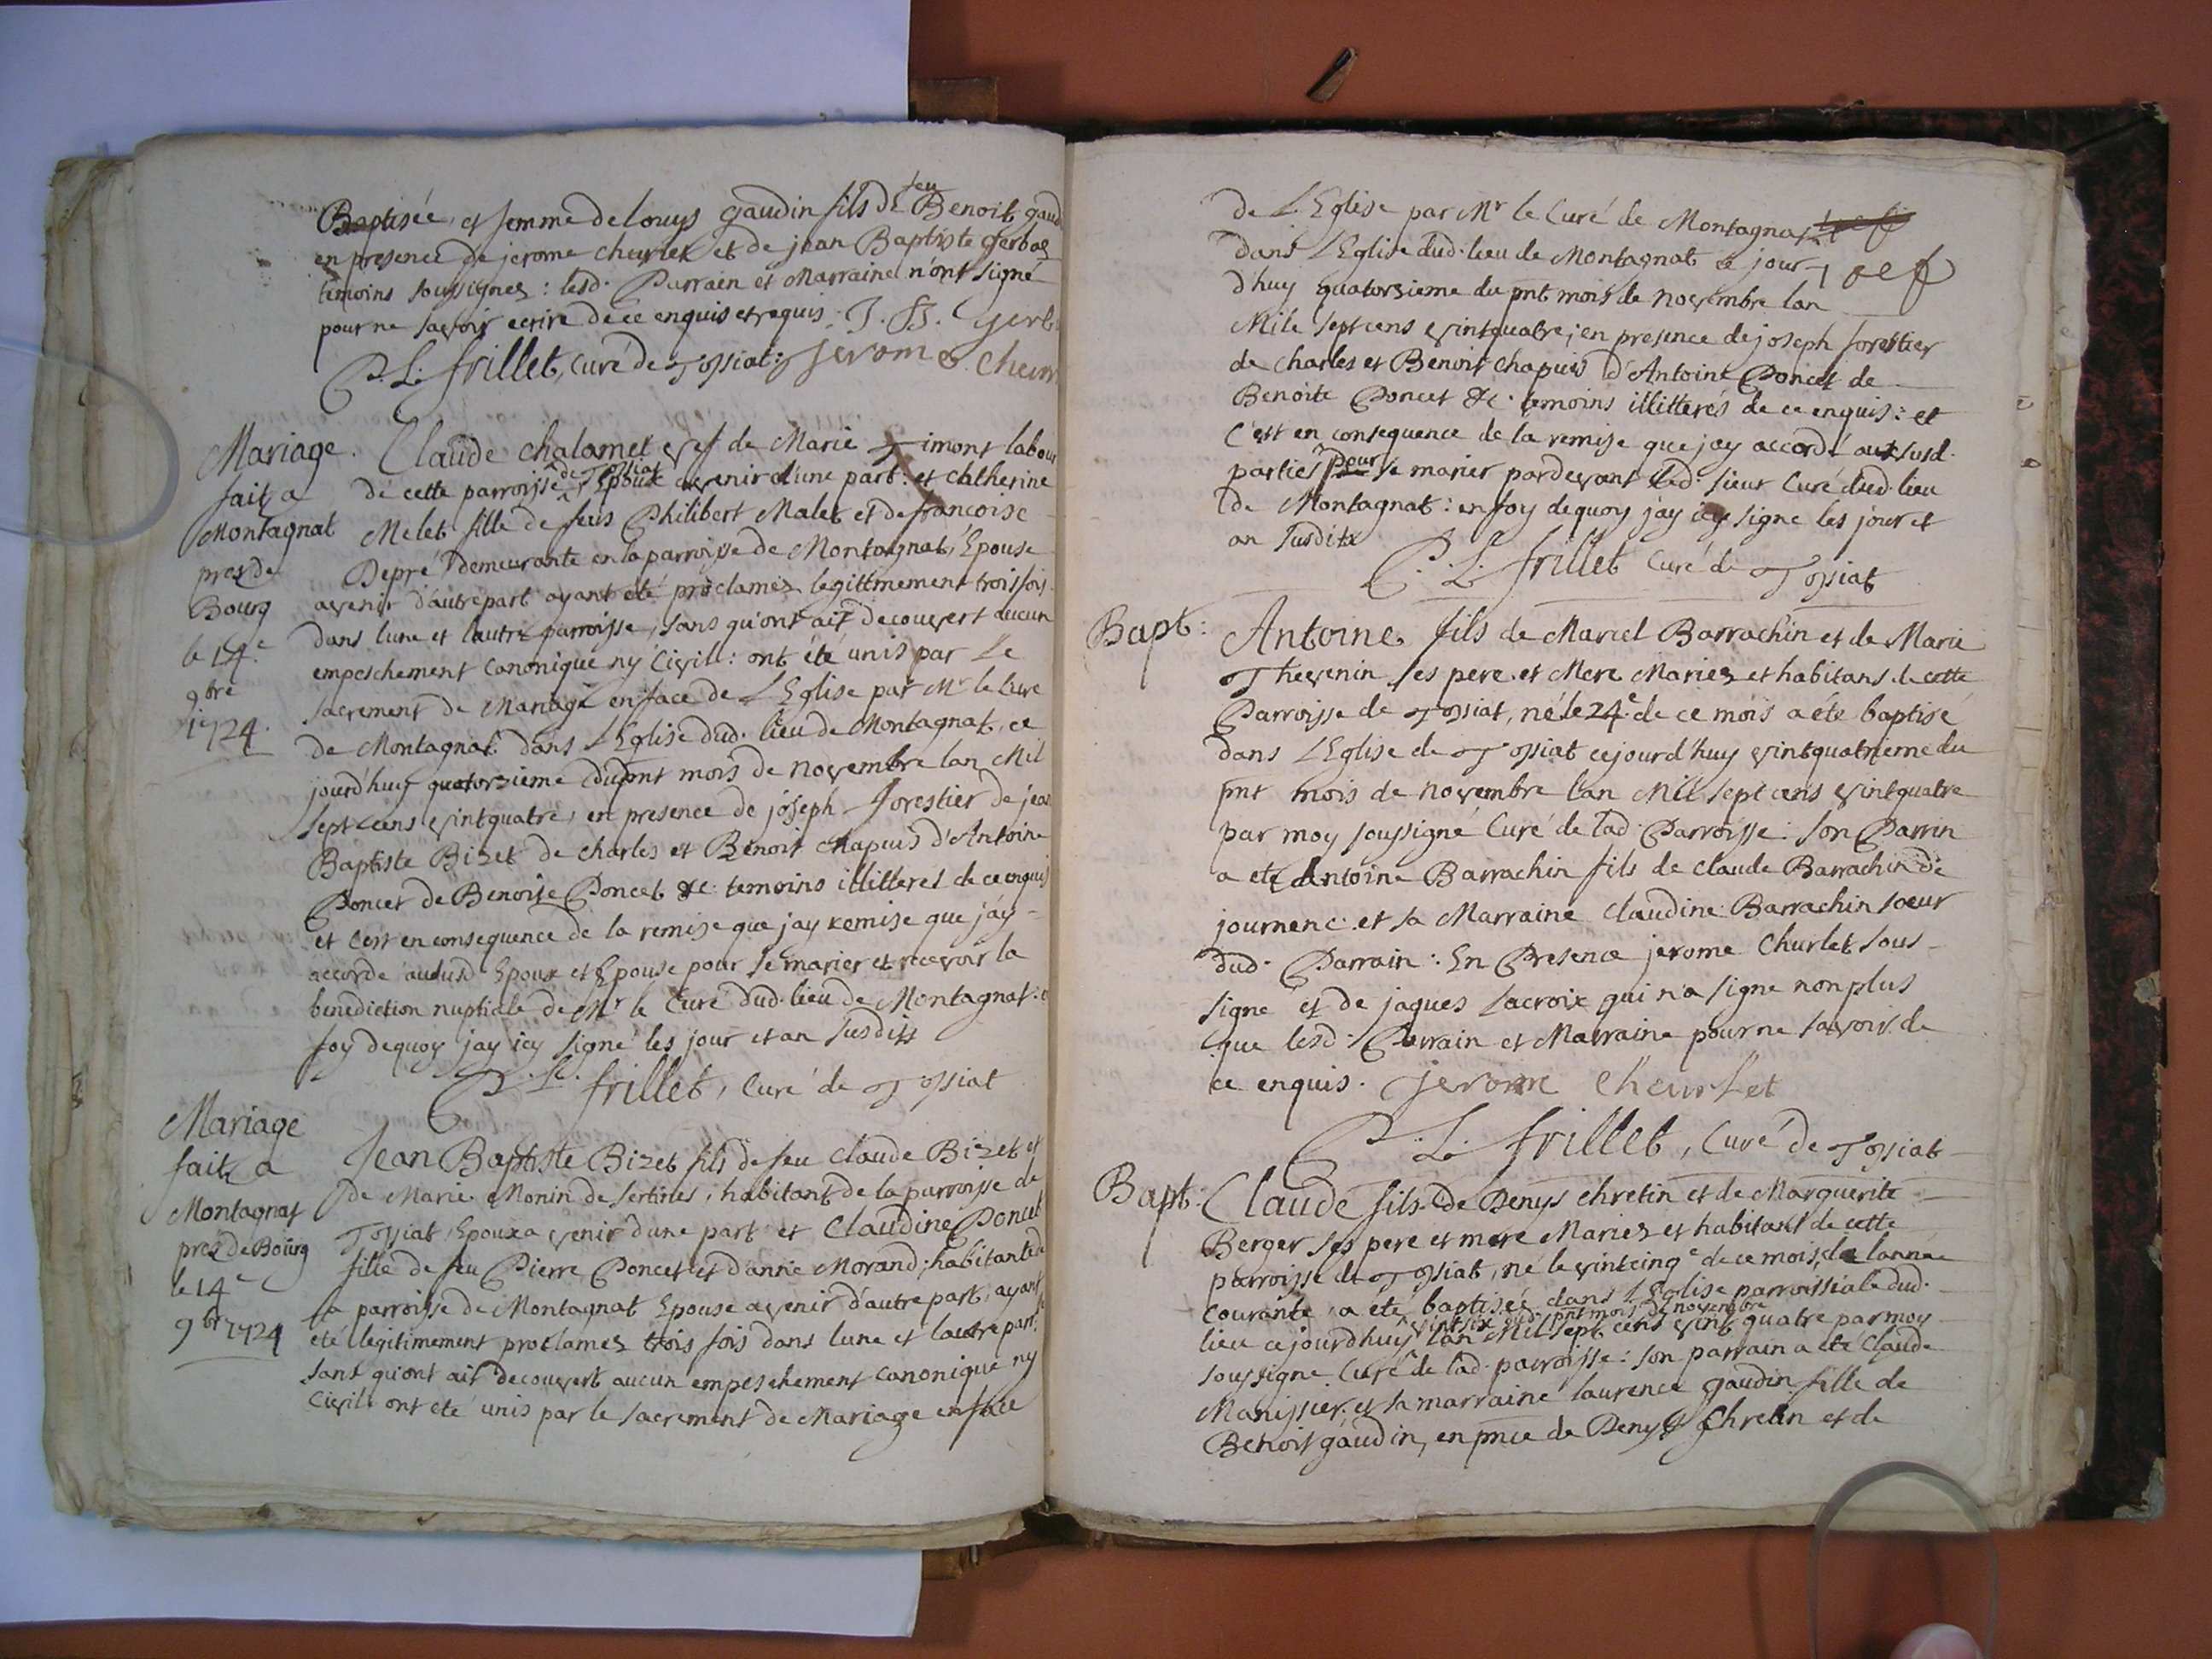 Baptisée, et femme de louys gaudin fils de feu Benoit gaud
en presence de jerome churlet et de jean Baptiste Gerbaz
temoins soussignez : lesd. Parrain et Marraine n'ont signé
pour ne savoir ecrire de ce enquis et requis. J. B. Gerb
P. L. frillet, Curé de Tossiat. Jerome Cheur
Mariage
fait a
Montagnat
prez de
Bourg
le 14e
9bre
1724.
Claude Chalamet vef de Marie Timont labour
de cette parroisse de Tossiat Epoux avenir d'une part : et Catherine
Melet fille de feus Philibert Malet et de francoise
Depré demeurante en la parroisse de Montagnat, Epouse
avenir d'autre part ayant eté proclamez legittmement trois fois
dans l'une et l'autre parroisse, sans qu'ont ait decouvert aucun
empeschement Canonique ny Civil : ont été unis par Le
sacrement de Mariage en face de L'Eglise par Mr le Curé
de Montagnat dans L'Eglise dud. lieu de Montagnat, ce
jourd'huy quatorsieme du pnt mois de novembre lan Mil
sept cens vintquatre, en presence de joseph forestier de jean
Baptiste Bizet de charles et Benoit Chapuis d'Antoine
Poncet de Benoite Poncet &c. temoins illitterés de ce enquis
et c'est en consequence de la remise que jay remise que j'ay
accordé audusd Epoux et Epouse pour se marier et recevoir la
benediction nuptiale de Mr le Curé dud. lieu de Montagnat : e
foy dequoy jay icy signé les jour et an susdits
P. L. frillet, Curé de Tossiat
Mariage
fait a
Montagnat
prez de Bourg
le 14e
9bre 1724
Jean Baptiste Bizet fils de feu Claude Bizet et
de Marie Monin de Sertines, habitant de la parroisse de
Tossiat, Epoux a venir d'une part et Claudine Poncet
fille de feu Pierre Poncet et d'anne Morand, habitante de
la parroisse de Montagnat Epouse avenir d'autre part, ayant
eté llegitimement proclamez trois fois dans lune et lautre part.
sans qu'ont ait decouvert aucun empeschement canonique ny
Civil : ont eté unis par le sacrement de Mariage en face
de L'Eglise par Mr le Curé de Montagnat
dans l'Eglise dud. lieu de Montagnat ce jour
d'huy quatorsieme du pnt mois de novembre lan
Mile sept cens vintquatre, en presence de joseph forestier
de charles et Benoit chapuis d'Antoine Poncet de
Benoite Poncet &c. temoins illitterés de ce enquis : et
C'est en consequence de la remise que jay accordé aux susd.
parties pour se marier pardevant led. sieur Curé dud. lieu
de Montagnat : en foy dequoy jay icy signé les jour et
an susdits
P. L. frillet Curé de Tossiat
Bapt :
Antoine fils de Marcel Barrachin et de Marie
Thevenin ses pere et Mere Mariez et habitans de cette
Parroisse de Tossiat, né le 24e de ce mois a été baptisé
dans l'Eglise de Tossiat cejourd'huy vintquatrieme du
pnt mois de novembre l'an Mil sept cens vintquatre
par moy soussigné Curé de lad. Parroisse : son Parrin
a eté Antoine Barrachin fils de claude Barrachin de
journenc et sa Marraine Claudine Barrachin soeur
dud. Parrain : En Presence jerome Churlet sous-
signé et de jaques Lacroix qui n'a signé non plus
que lesd. Parrain et Marraine pour ne savoir de
ce enquis. Jerome Cheurlet
P. L. frillet, Curé de Tossiat
Bapt :
Claude fils de Denys Chretin et de Marguerite
Berger ses pere et mere Mariez et habitant de cette
parroisse de Tossiat, né le vintcinqe de ce mois, de lannée
Courante, a été baptisée dans l'Eglise parroissiale dud.
vintsix dud. pnt mois de novembre
lieu cejourdhuy lan Mil sept cens vint quatre par moy
soussigné Curé de lad. parroisse : son parrain a eté Claude
Manissier, et sa marraine laurence gaudin fille de
Benoit gaudin, en pnce de Denys Chretin et de